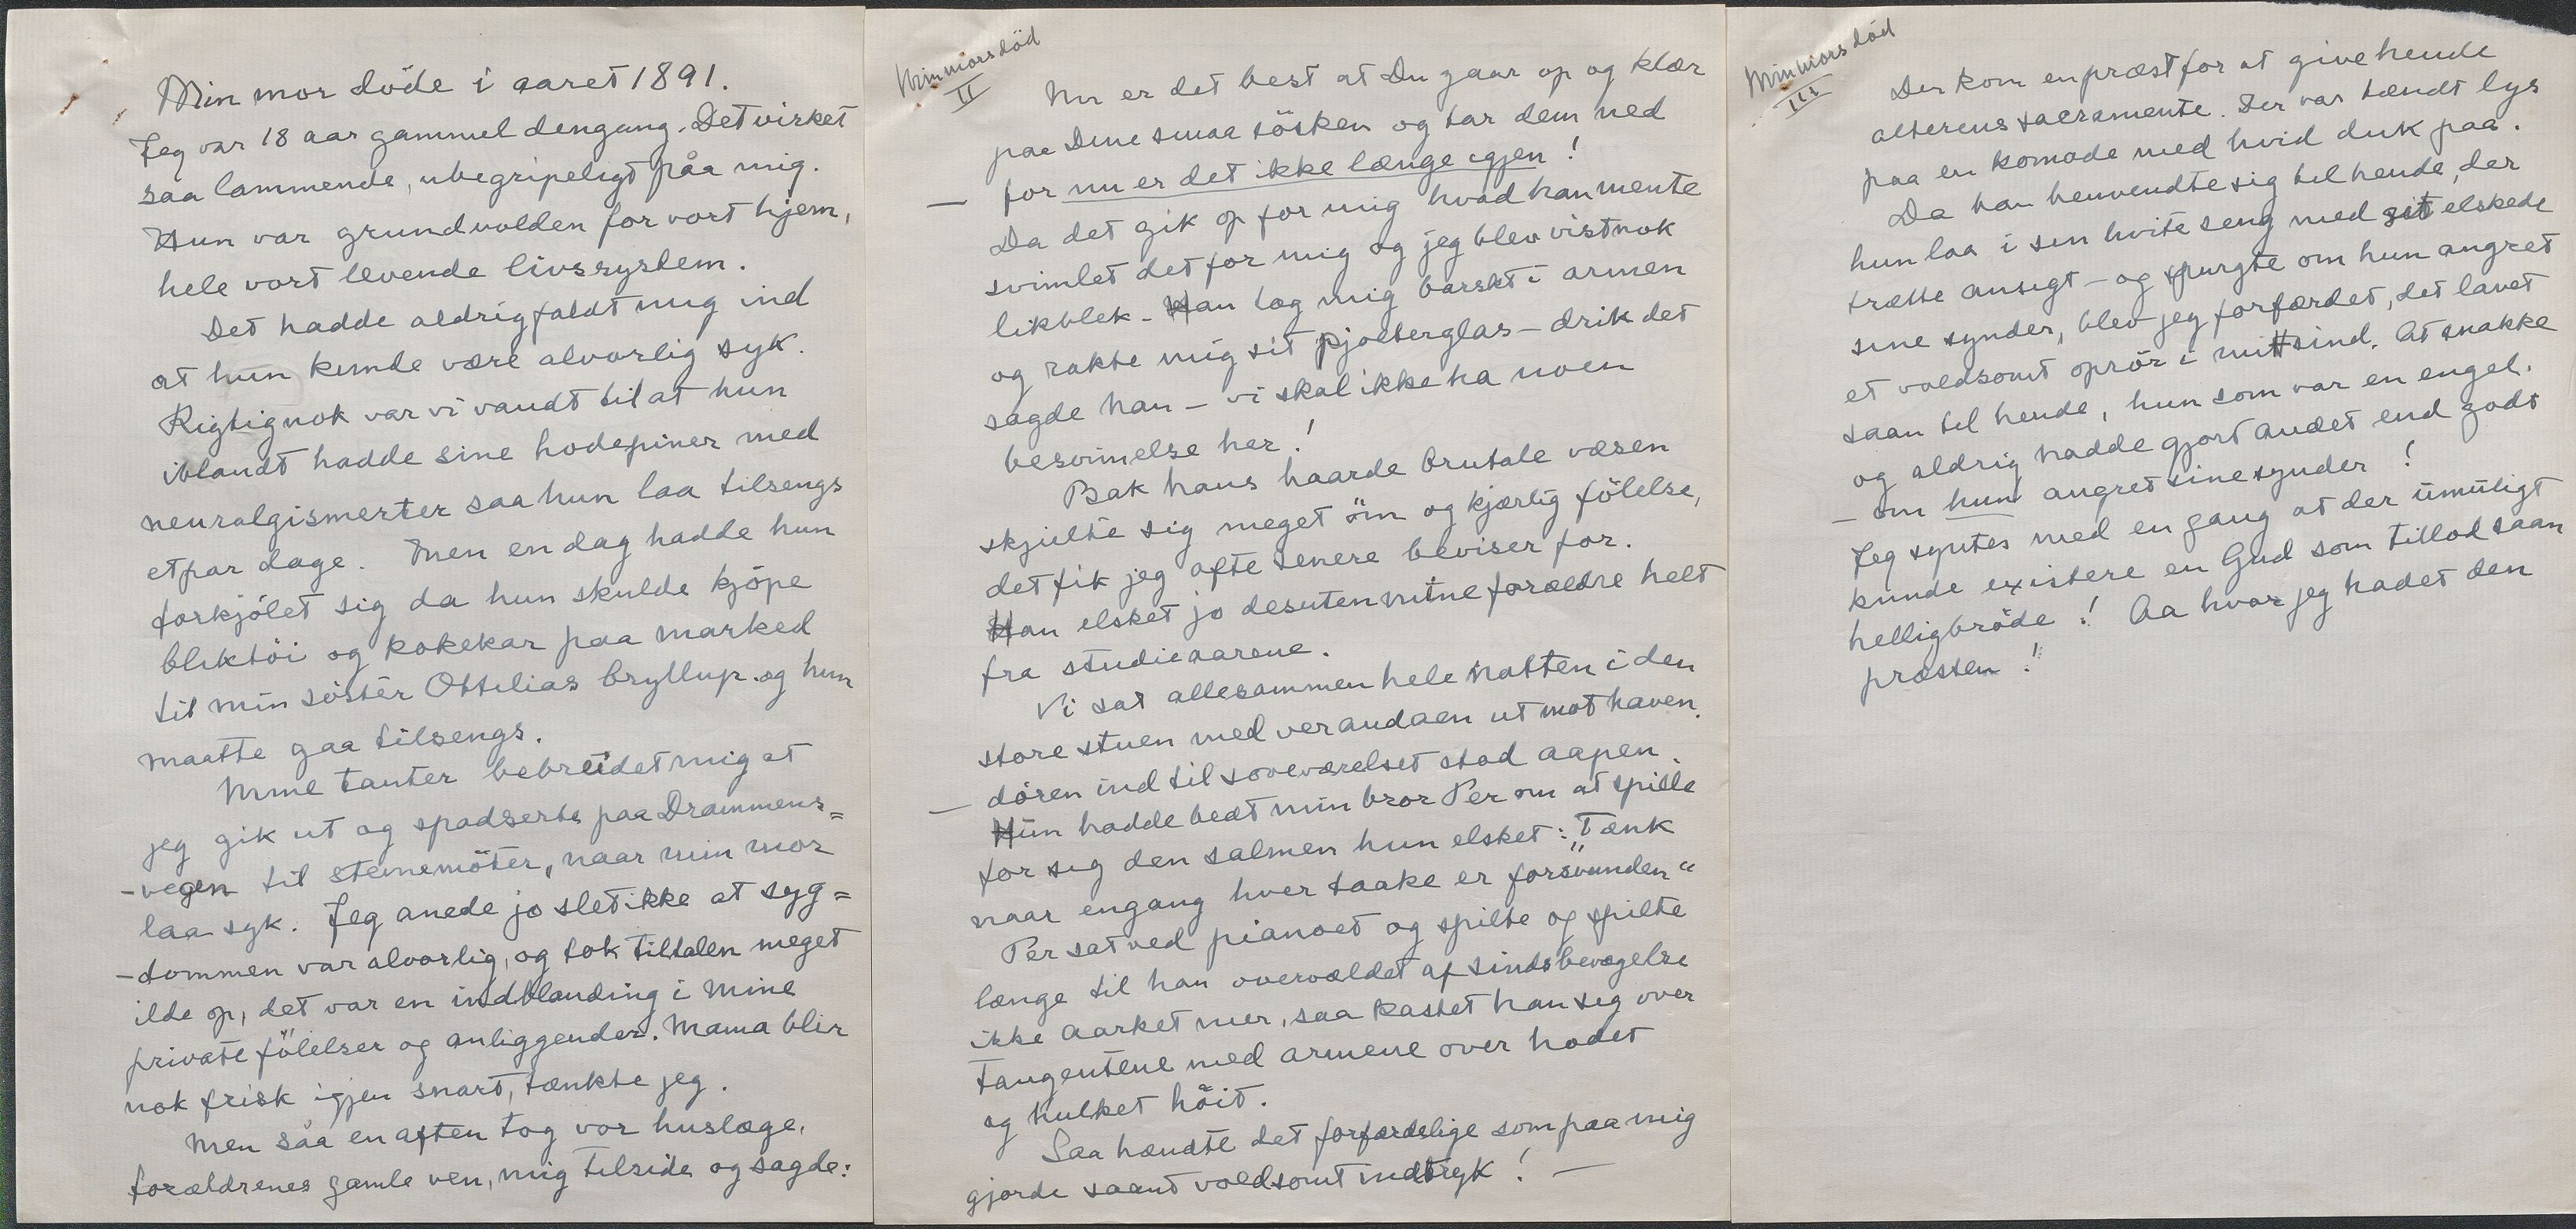 Min mor döde i aaret 1891.
Jeg var 18 aar gammel dengang. Det virket
saa lammende, ubegripeligt påa mig.
Hun var grundvolden for vort hjem,
hele vort levende livssystem.
Det hadde aldrig faldt mig ind
at hun kunde være alvorlig syk.
Rigtignok var vi vandt til at hun
iblandt hadde sine hodepiner med
neuralgismerter saa hun laa tilsengs
etpar dage. Men en dag hadde hun
forkjölet sig da hun skulde kjöpe
bliktöi og kokekar paa marked
til min söster Ottilias bryllup. og hun
maatte gaa tilsengs.
Mine tanter bebreidet mig at
jeg gik ut og spadserte paa Drammens=
-vegen til stevnemöter, naar min mor
laa syk. Jeg anede jo slet ikke at syg=
-dommen var alvorlig, og tok tiltalen meget
ilde op, det var en indblanding i mine
private fölelser og anliggender. Mama blir
nok frisk igjen snart, tænkte jeg.
Men saa en aften tog vor huslæge,
forældrenes gamle ven, mig tilside og sagde:
Min mors död
II
Nu er det best at Du gaar op og klær
paa Dine smaa sösken og tar dem ned
— for nu er det ikke længe igjen!
Da det gik op for mig hvad han mente
svimlet det for mig og jeg blev vistnok
likblek - Han tog mig barskt i armen
og rakte mig sit pjolterglas - drik det
sagde han - vi skal ikke ha noen
besvimelse her!
Bak hans haarde brutale væsen
skjulte sig meget öm og kjærlig fölelse,
det fik jeg ofte senere beviser for.
Han elsket jo desuten mine forældre helt
fra studieaarene.
Vi sat allesammen hele natten i den
store stuen med verandaen ut mot haven.
— dören ind til soveværelset stod aapen.
Hun hadde bedt min bror Per om at spille
for sig den salmen hun elsket: „Tænk
naar engang hver taake er forsvunden“
Per sat ved pianoet og spilte og spilte
længe til han overvældet af sindsbevægelse
ikke aarket mer, saa kastet han seg over
tangentene med armene over hodet
og hulket höit.
Saa hændte det forfærdelige som paa mig
gjorde saant voldsomt indtryk! —
Min mors död
III
Der kom en præst for at give hende
alterens sacramente. Der var tændt lys
paa en komode med hvid duk paa.
Da han henvendte sig til hende, der
hun laa i sin hvite seng med sit elskede
trætte ansigt - og spurgte om hun angret
sine synder, blev jeg forfærdet, det lavet
et voldsomt oprör i mitt sind. At snakke
saan til hende, hun som var en engel.
og aldrig hadde gjort andet end godt
- om hun angret sine synder!
Jeg syntes med en gang at der umuligt
kunde existere en Gud som tillod saan
helligbröde! Aa hvor jeg hadet den
præsten!